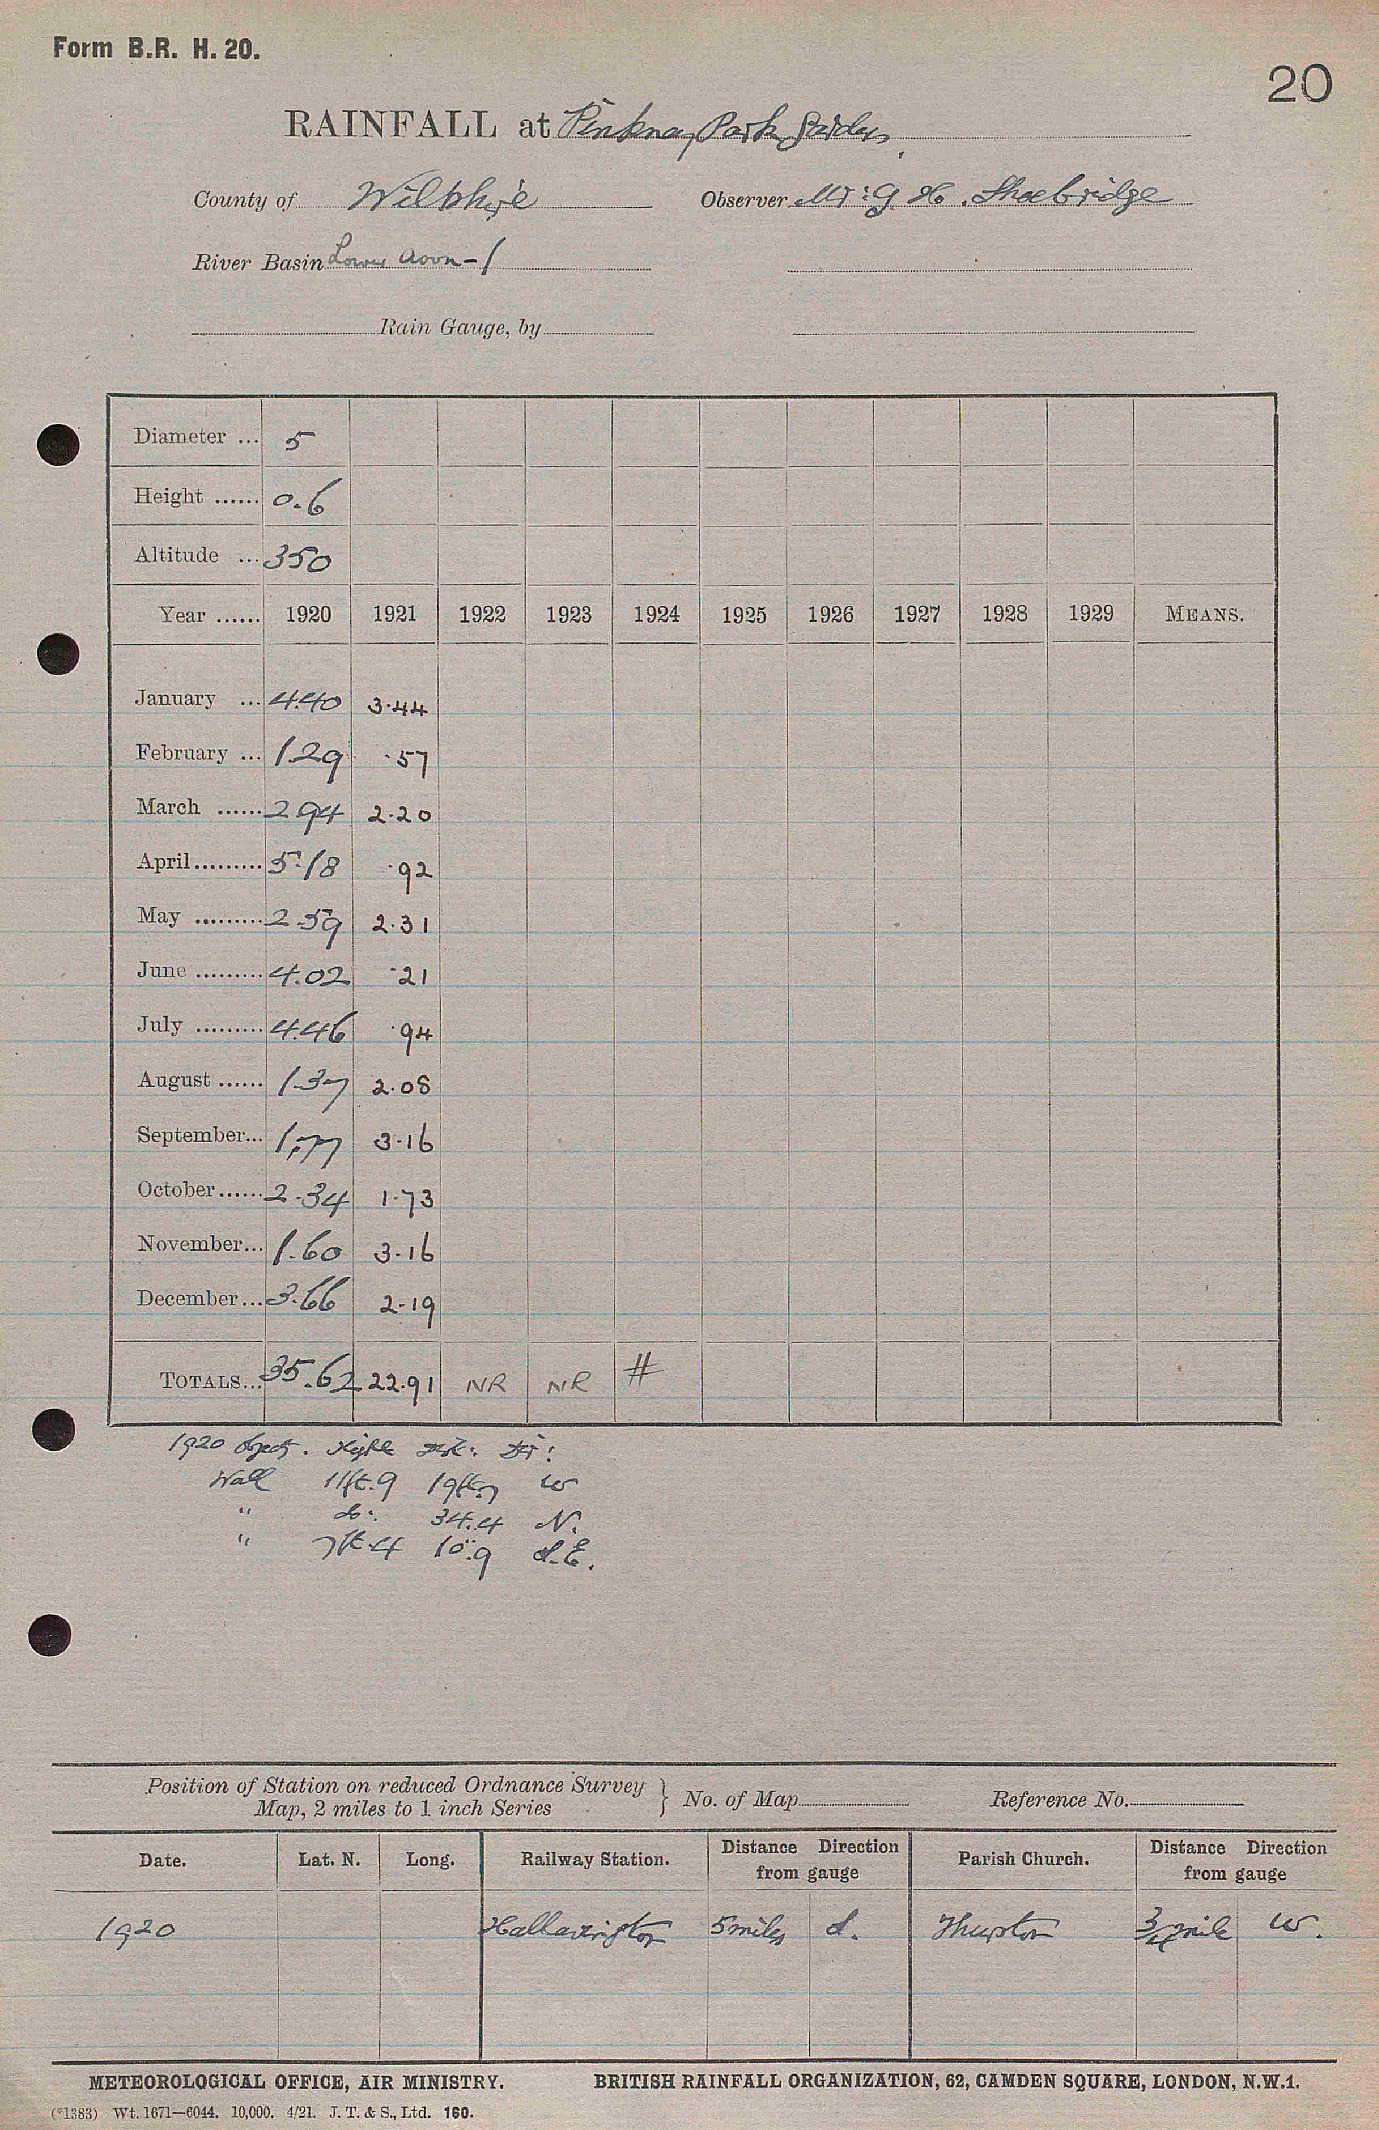 Form B.R. H. 20.
20
RAINFALL at Pinkney Park Gardens
County of Wiltshire Observer Mr. G. H. Shoebridge
River Basin Lower Avon - 1
Rain Gauge, by
Diameter ... 5
Height ...... 0.6
Altitude ... 350
Year ...... 1920 1921 1922 1923 1924 1925 1926 1927 1928 1929 MEANS.
January ... 4.40 3.44
February ... 1.29 .57
March ...... 2.94 2.20
April......... 5.18 .92
May ......... 2.59 2.31
June ......... 4.02 .21
July ......... 4.46 .94
August ...... 1.37 2.08
September... 1.77 3.16
October...... 2.34 1.73
November... 1.60 3.16
December... 3.66 2.19
TOTALS... 35.62 22.91 NR NR #
1920 Object. Height Dist: Dir:
Wall 11ft.9 19ft.7 W
" do: 34.4 N.
" 7ft.4 10.9 S.E.
Position of Station on reduced Ordnance Survey } No. of Map Reference No.
Map, 2 miles to 1 inch Series
Date. Lat. N. Long. Railway Station. Distance Direction from gauge Parish Church. Distance Direction from gauge
1920 Hallavington 5 miles S. 3/4 mile W.
METEOROLOGICAL OFFICE, AIR MINISTRY. BRITISH RAINFALL ORGANIZATION, 62, CAMDEN SQUARE, LONDON, N.W.1.
(*1383) Wt. 1671—6044. 10,000. 4/21. J. T. & S., Ltd. 160.